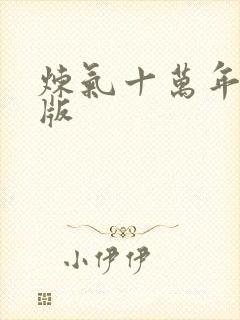 煉氣十萬年
版
小伊伊